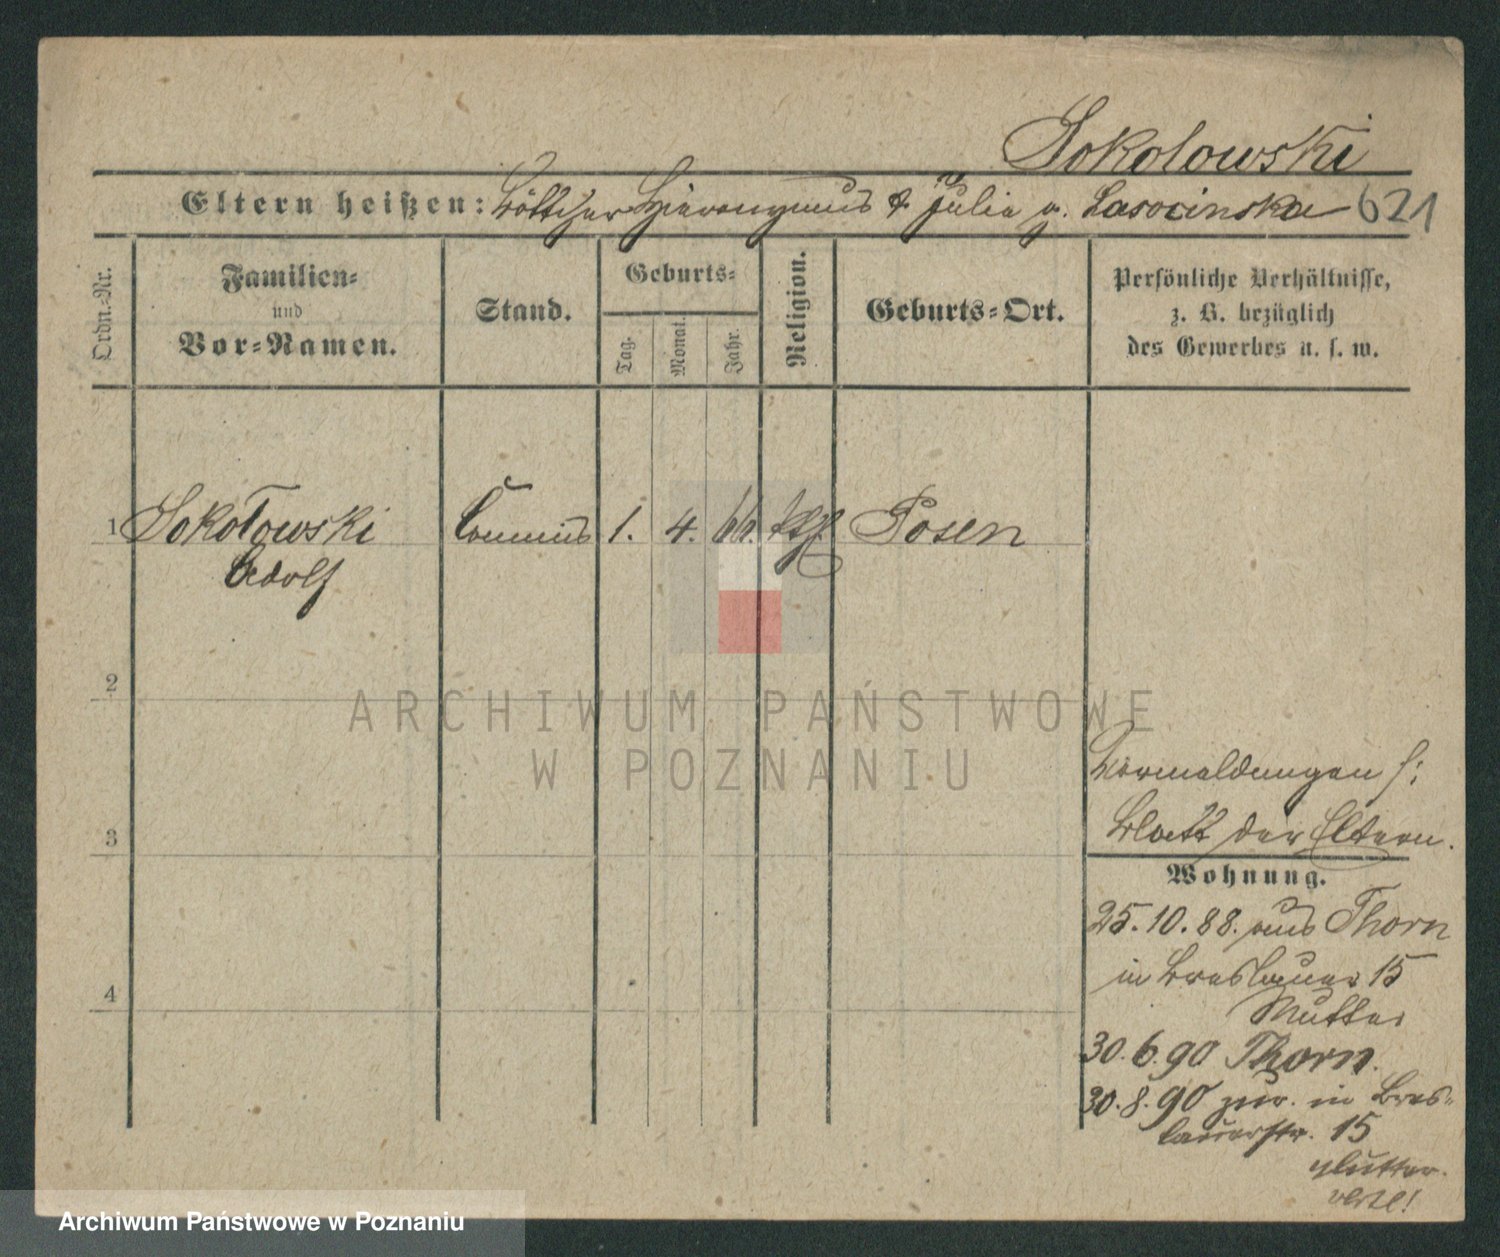 Sokolowski
Eltern heißen: Böttcher Hieronymus & Julia g. Lasocinska 621
Ordn.=Nr.
Familien=
und
Vor=Namen.
Stand.
Geburts=
Tag.
Monat.
Jahr.
Religion.
Geburts=Ort.
Persönliche Verhältnisse,
z. B. bezüglich
des Gewerbes u. s. w.
1 Sokołowski Commis 1. 4. 66. kth. Posen
Adolf
2
ARCHIWUM PAŃSTWOWE
W POZNANIU
Vormeldungen s:
3 Blatt der Eltern.
Wohnung.
25.10.88. aus Thorn
in Breslauer 15
4
Mutter
30.6.90 Thorn.
30.8.90 zur. in Bres=
lauerstr. 15
Mutter.
Archiwum Państwowe w Poznaniu